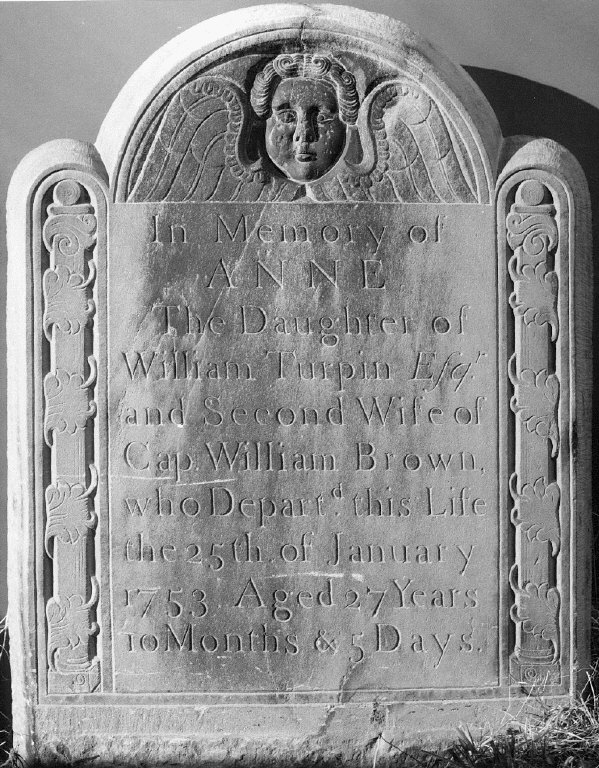 In Memory of
ANNE
The Daughter of
William Turpin Esqʳ.
and Second Wife of
Cap. William Brown,
who Departᵈ. this Life
the 25th. of January
1753 Aged 27 Years
10 Months & 5 Days.